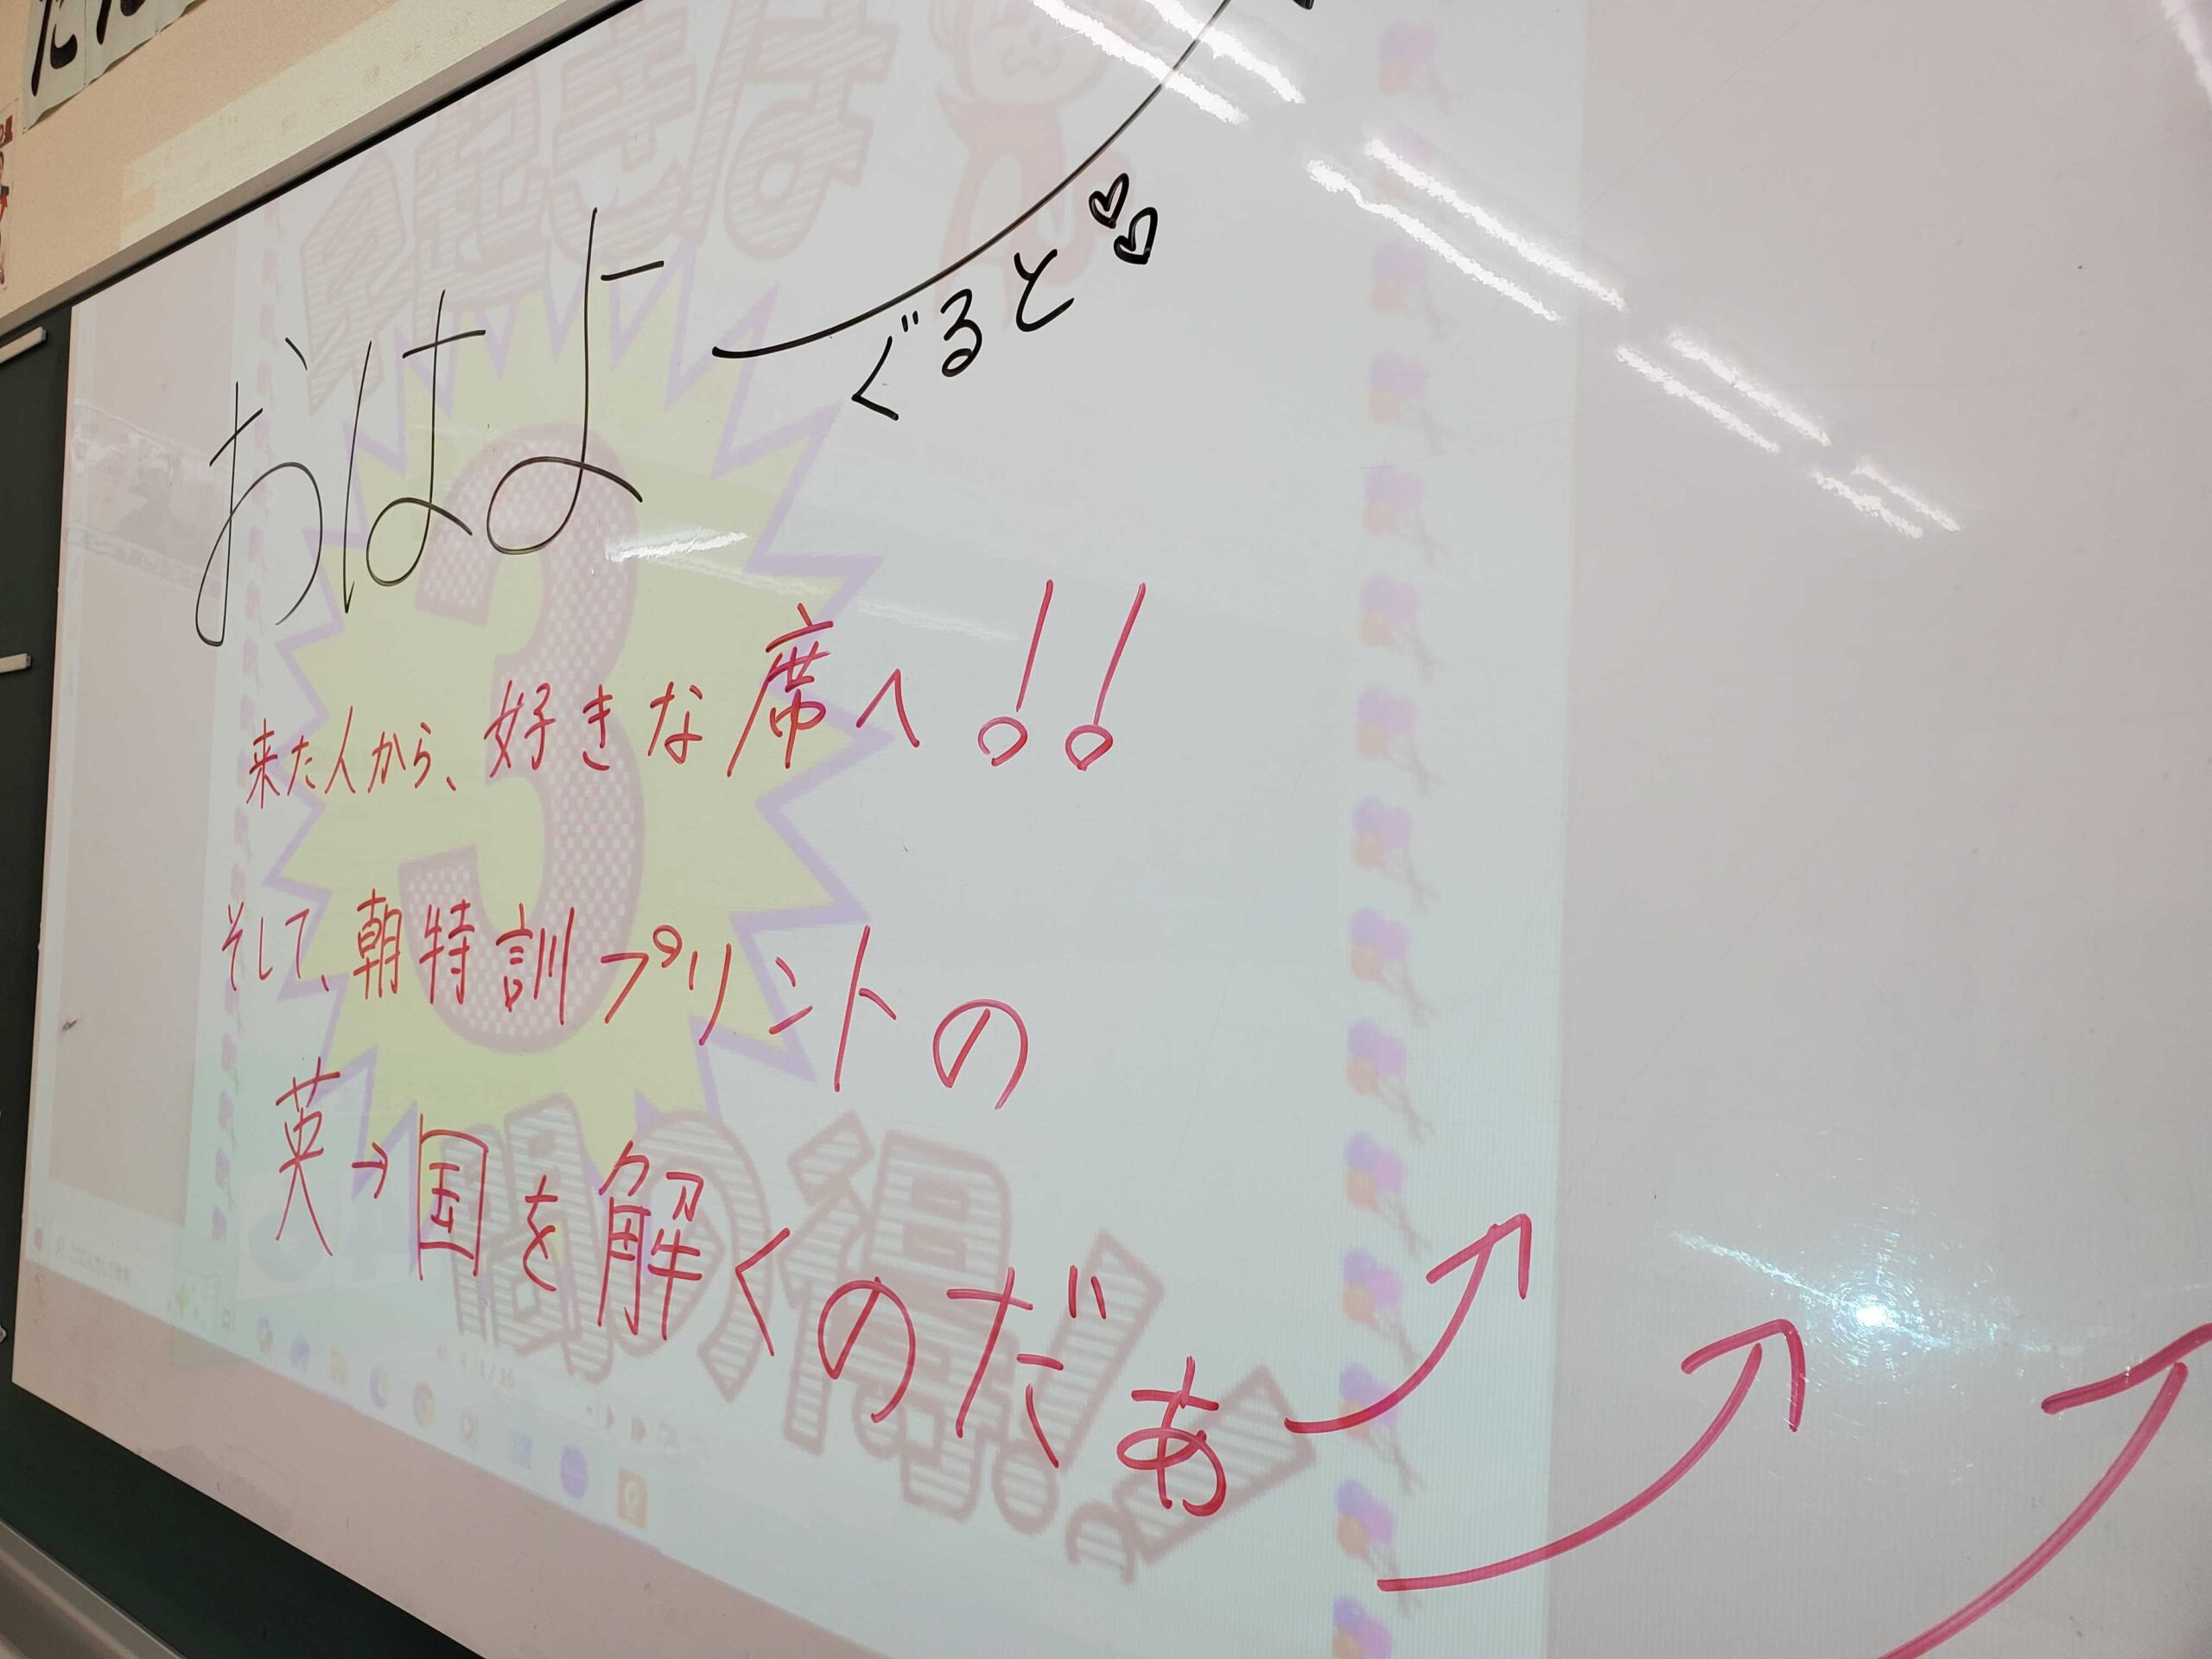 早起きは
おはよー
ぐると♡♡
3
来た人から、好きな席へ!!
そして、朝特訓プリントの
英→国を解くのだぁ
得!